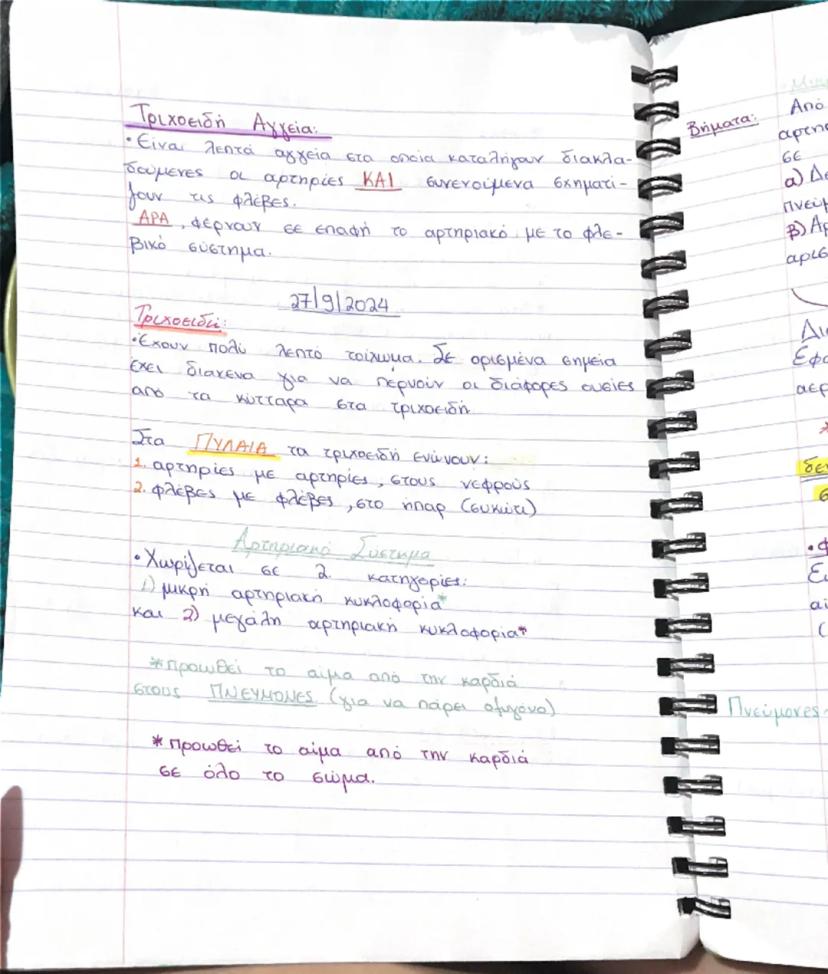 Τριχοειδή Αγγεία:
• Είναι λεπτά αγγεία στα οποία καταλήγουν διακλα-
δούμενες οι αρτηρίες ΚΑΙ συνενούμενα σχηματί-
ζουν τις φλέβες.
ΑΡΑ, φέρνουν σε επαφή το αρτηριακό με το φλε-
βικό σύστημα.
27/9/2024
Τριχοειδεί:
• Έχουν πολύ λεπτό τοίχωμα. Σε ορισμένα σημεία
έχει διάκενα για να πέρνούν οι διάφορες ουσίες
από τα κύτταρα στα τριχοειδή
Στα ΠΥΛΑΙΑ τα τριχοειδή ενώνουν:
1. αρτηρίες με αρτηρίες, στους νεφρούς
2. φλέβες με φλέβες, στο ήπαρ (συκώτι)
Αρτηριακό Σύστημα
• Χωρίζεται σε 2 κατηγορίες:
1) μικρή αρτηριακή κυκλοφορία*
και 2) μεγάλη αρτηριακή κυκλοφορία*
*προωθεί το αίμα από την καρδιά
στους ΠΝΕΥΜΟΝΕΣ (για να πάρει οξυγόνο)
*προωθεί το αίμα από την καρδιά
σε όλο το σώμα.
Βήματα:
Από
σε
α) Δε
β) Αρ
Πνεύμονες